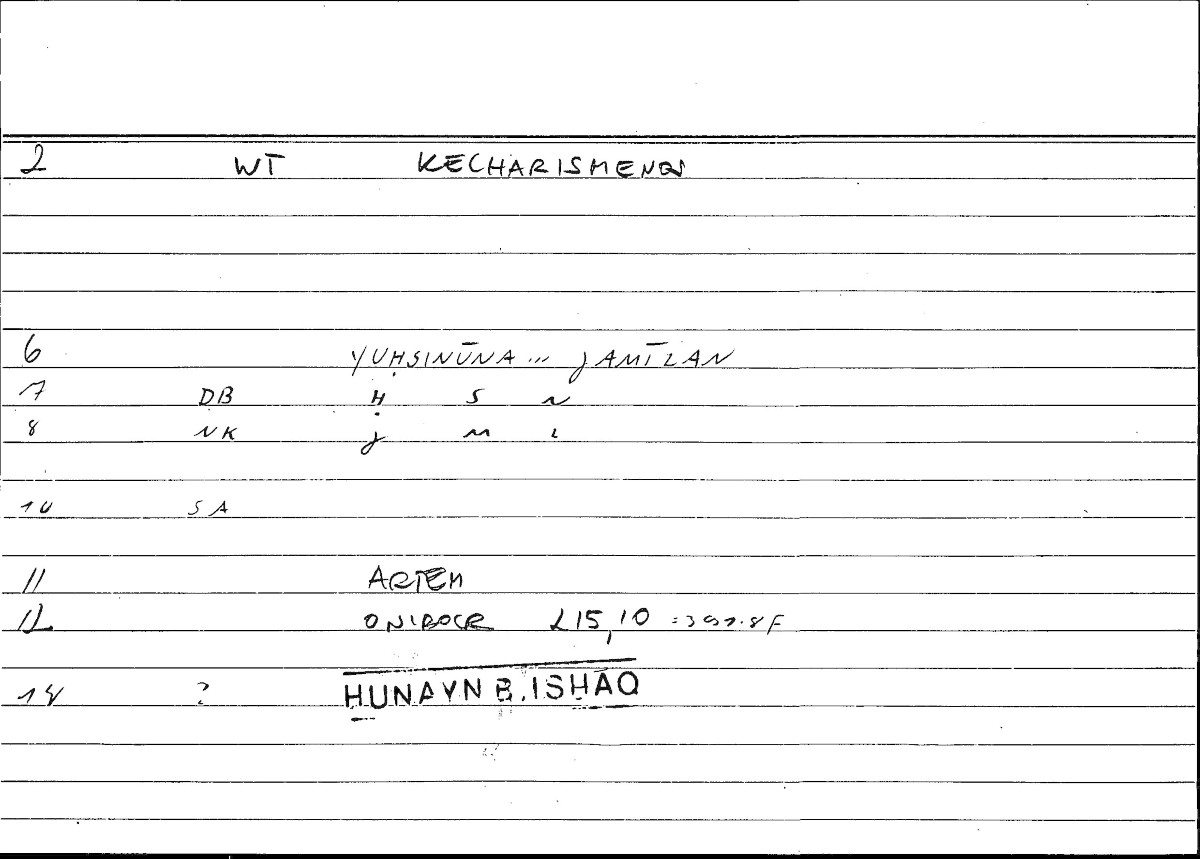 2 WT KECHARISMENOS
6 YUḤSINŪNA ... JAMĪLAN
7 DB Ḥ S N
8 NK J M L
10 SA
11 ARTEM
12 ONIROCR L15,10 = 397.8F
14 ? HUNAYN B. ISHAQ